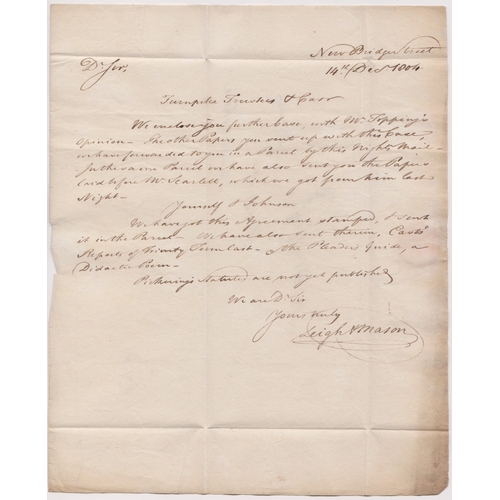 New Bridge Street
14th Decr 1804
Dr Sir,
Turnpike Trustees &
We enclose you further Case, with Mr Topping's
Opinion - The other Papers you sent up with this Case,
we have forwarded to you in a Parcel by this Night's Mail -
In the same Parcel we have also sent you the Papers
laid before Mr Scarlett, which we got from him last
Night -
Yourself & Johnson
We have got this Agreement stamped, & sent
it in the Parcel. We have also sent therein, East's
Reports of Trinity Term last - & the Pleader's Guide, a
Didactic Poem -
Pickering's Statutes are not yet published
We are Dr Sir
Yours truly
Leigh & Mason